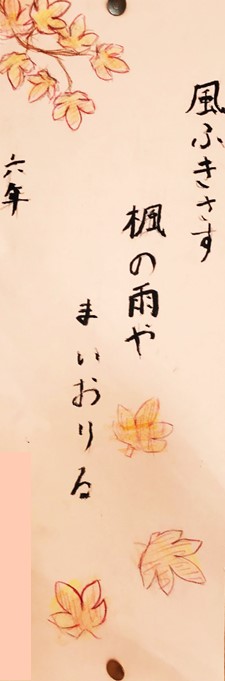 風ふきさす
楓の雨や
まいおりる
六年